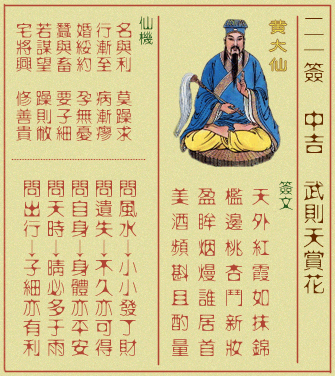 二一簽 中吉 武則天賞花
黃大仙
簽文
天外紅霞如抹錦
檻邊桃杏鬥新妝
盈眸烟熳誰居首
美酒頻斟且酌量
仙機
名與利 莫躁求
行漸至 病漸瘳
婚綏約 孕無憂
蠶與畜 要子細
若謀望 躁則敝
宅將興 修善貴
問風水→小小發了財
問遺失→不久亦可得
問自身→身體亦平安
問天時→晴必多于雨
問出行→子細亦有利